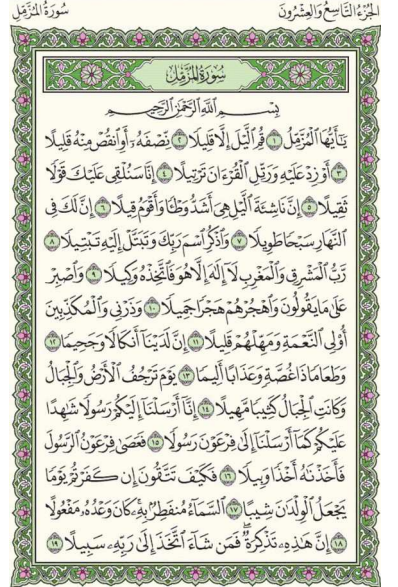 الجزء التاسع والعشرون
سورة المزمل
سُورَةُ المُزَّمِّل
بِسْمِ اللَّهِ الرَّحْمَٰنِ الرَّحِيمِ
يَٰٓأَيُّهَا ٱلْمُزَّمِّلُ ١ قُمِ ٱلَّيْلَ إِلَّا قَلِيلًا ٢ نِّصْفَهُۥٓ أَوِ ٱنقُصْ مِنْهُ قَلِيلًا
٣ أَوْ زِدْ عَلَيْهِ وَرَتِّلِ ٱلْقُرْءَانَ تَرْتِيلًا ٤ إِنَّا سَنُلْقِى عَلَيْكَ قَوْلًا
ثَقِيلًا ٥ إِنَّ نَاشِئَةَ ٱلَّيْلِ هِىَ أَشَدُّ وَطْـًٔا وَأَقْوَمُ قِيلًا ٦ إِنَّ لَكَ فِى
ٱلنَّهَارِ سَبْحًا طَوِيلًا ٧ وَٱذْكُرِ ٱسْمَ رَبِّكَ وَتَبَتَّلْ إِلَيْهِ تَبْتِيلًا ٨
رَّبُّ ٱلْمَشْرِقِ وَٱلْمَغْرِبِ لَآ إِلَٰهَ إِلَّا هُوَ فَٱتَّخِذْهُ وَكِيلًا ٩ وَٱصْبِرْ
عَلَىٰ مَا يَقُولُونَ وَٱهْجُرْهُمْ هَجْرًا جَمِيلًا ١٠ وَذَرْنِى وَٱلْمُكَذِّبِينَ
أُو۟لِى ٱلنَّعْمَةِ وَمَهِّلْهُمْ قَلِيلًا ١١ إِنَّ لَدَيْنَآ أَنكَالًا وَجَحِيمًا ١٢
وَطَعَامًا ذَا غُصَّةٍ وَعَذَابًا أَلِيمًا ١٣ يَوْمَ تَرْجُفُ ٱلْأَرْضُ وَٱلْجِبَالُ
وَكَانَتِ ٱلْجِبَالُ كَثِيبًا مَّهِيلًا ١٤ إِنَّآ أَرْسَلْنَآ إِلَيْكُمْ رَسُولًا شَٰهِدًا
عَلَيْكُمْ كَمَآ أَرْسَلْنَآ إِلَىٰ فِرْعَوْنَ رَسُولًا ١٥ فَعَصَىٰ فِرْعَوْنُ ٱلرَّسُولَ
فَأَخَذْنَٰهُ أَخْذًا وَبِيلًا ١٦ فَكَيْفَ تَتَّقُونَ إِن كَفَرْتُمْ يَوْمًا
يَجْعَلُ ٱلْوِلْدَٰنَ شِيبًا ١٧ ٱلسَّمَآءُ مُنفَطِرٌۢ بِهِۦ كَانَ وَعْدُهُۥ مَفْعُولًا
١٨ إِنَّ هَٰذِهِۦ تَذْكِرَةٌ فَمَن شَآءَ ٱتَّخَذَ إِلَىٰ رَبِّهِۦ سَبِيلًا ١٩